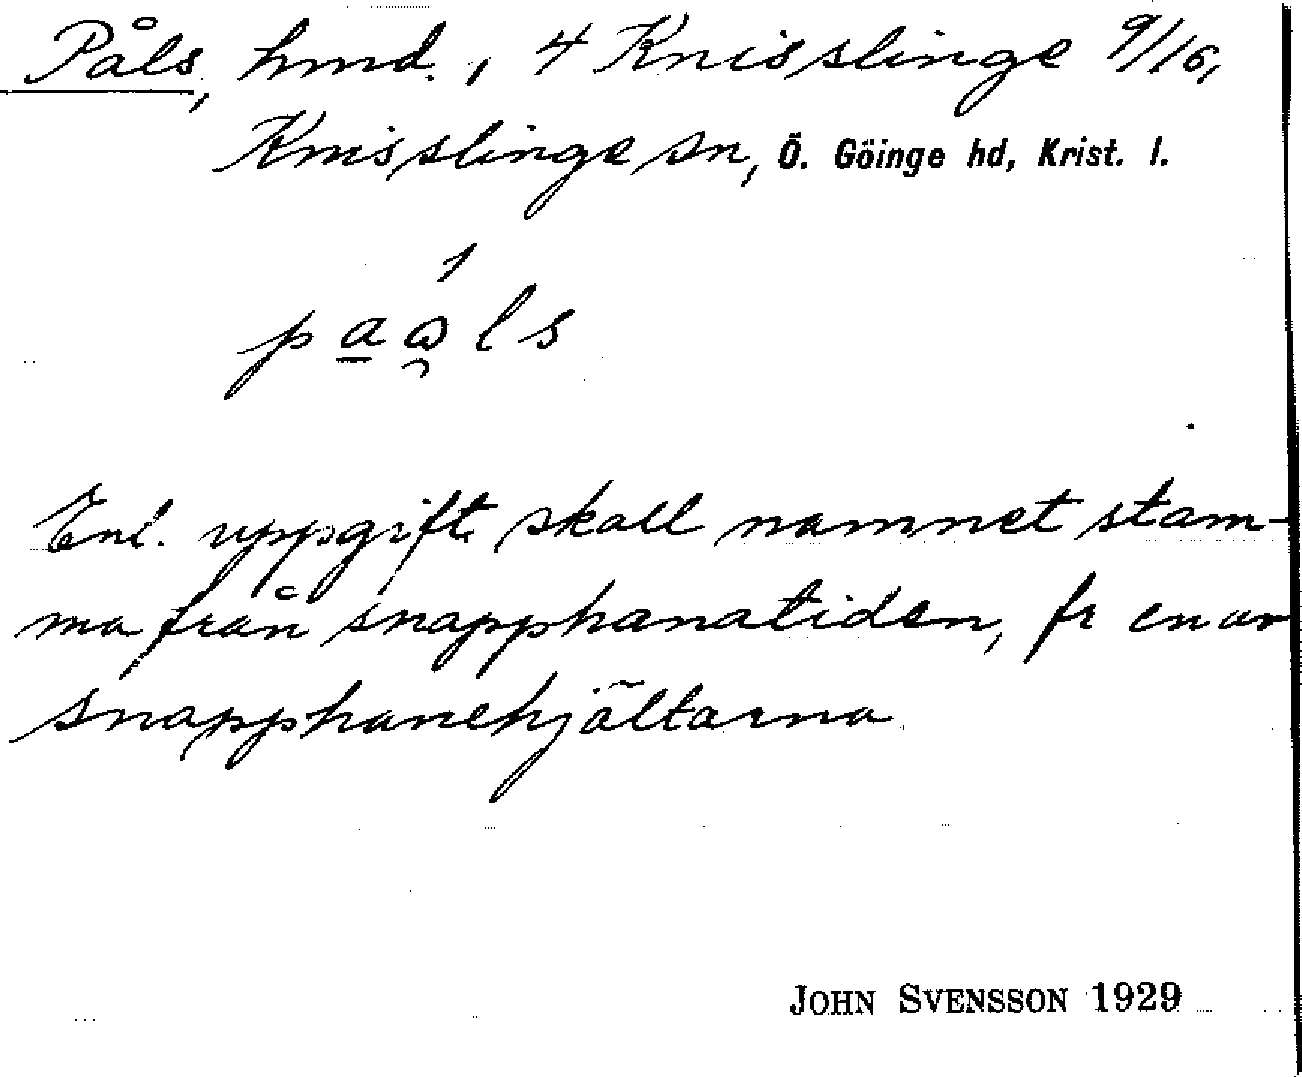 Påls, hmd., 4 Knisslinge 9/16,
Knisslinge sn, Ö. Göinge hd, Krist. l.
Enl. uppgift skall namnet stam-
ma från snapphanatiden, fr en av
snapphanehjältarna
JOHN SVENSSON 1929